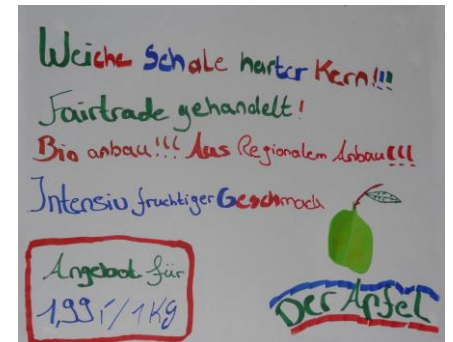 Weiche Schale harter Kern!!!
Fairtrade gehandelt!
Bio anbau!!! Aus Regionalem Anbau!!!
Intensiv fruchtiger Geschmack
Angebot für
1,99 / 1 Kg
Der Apfel